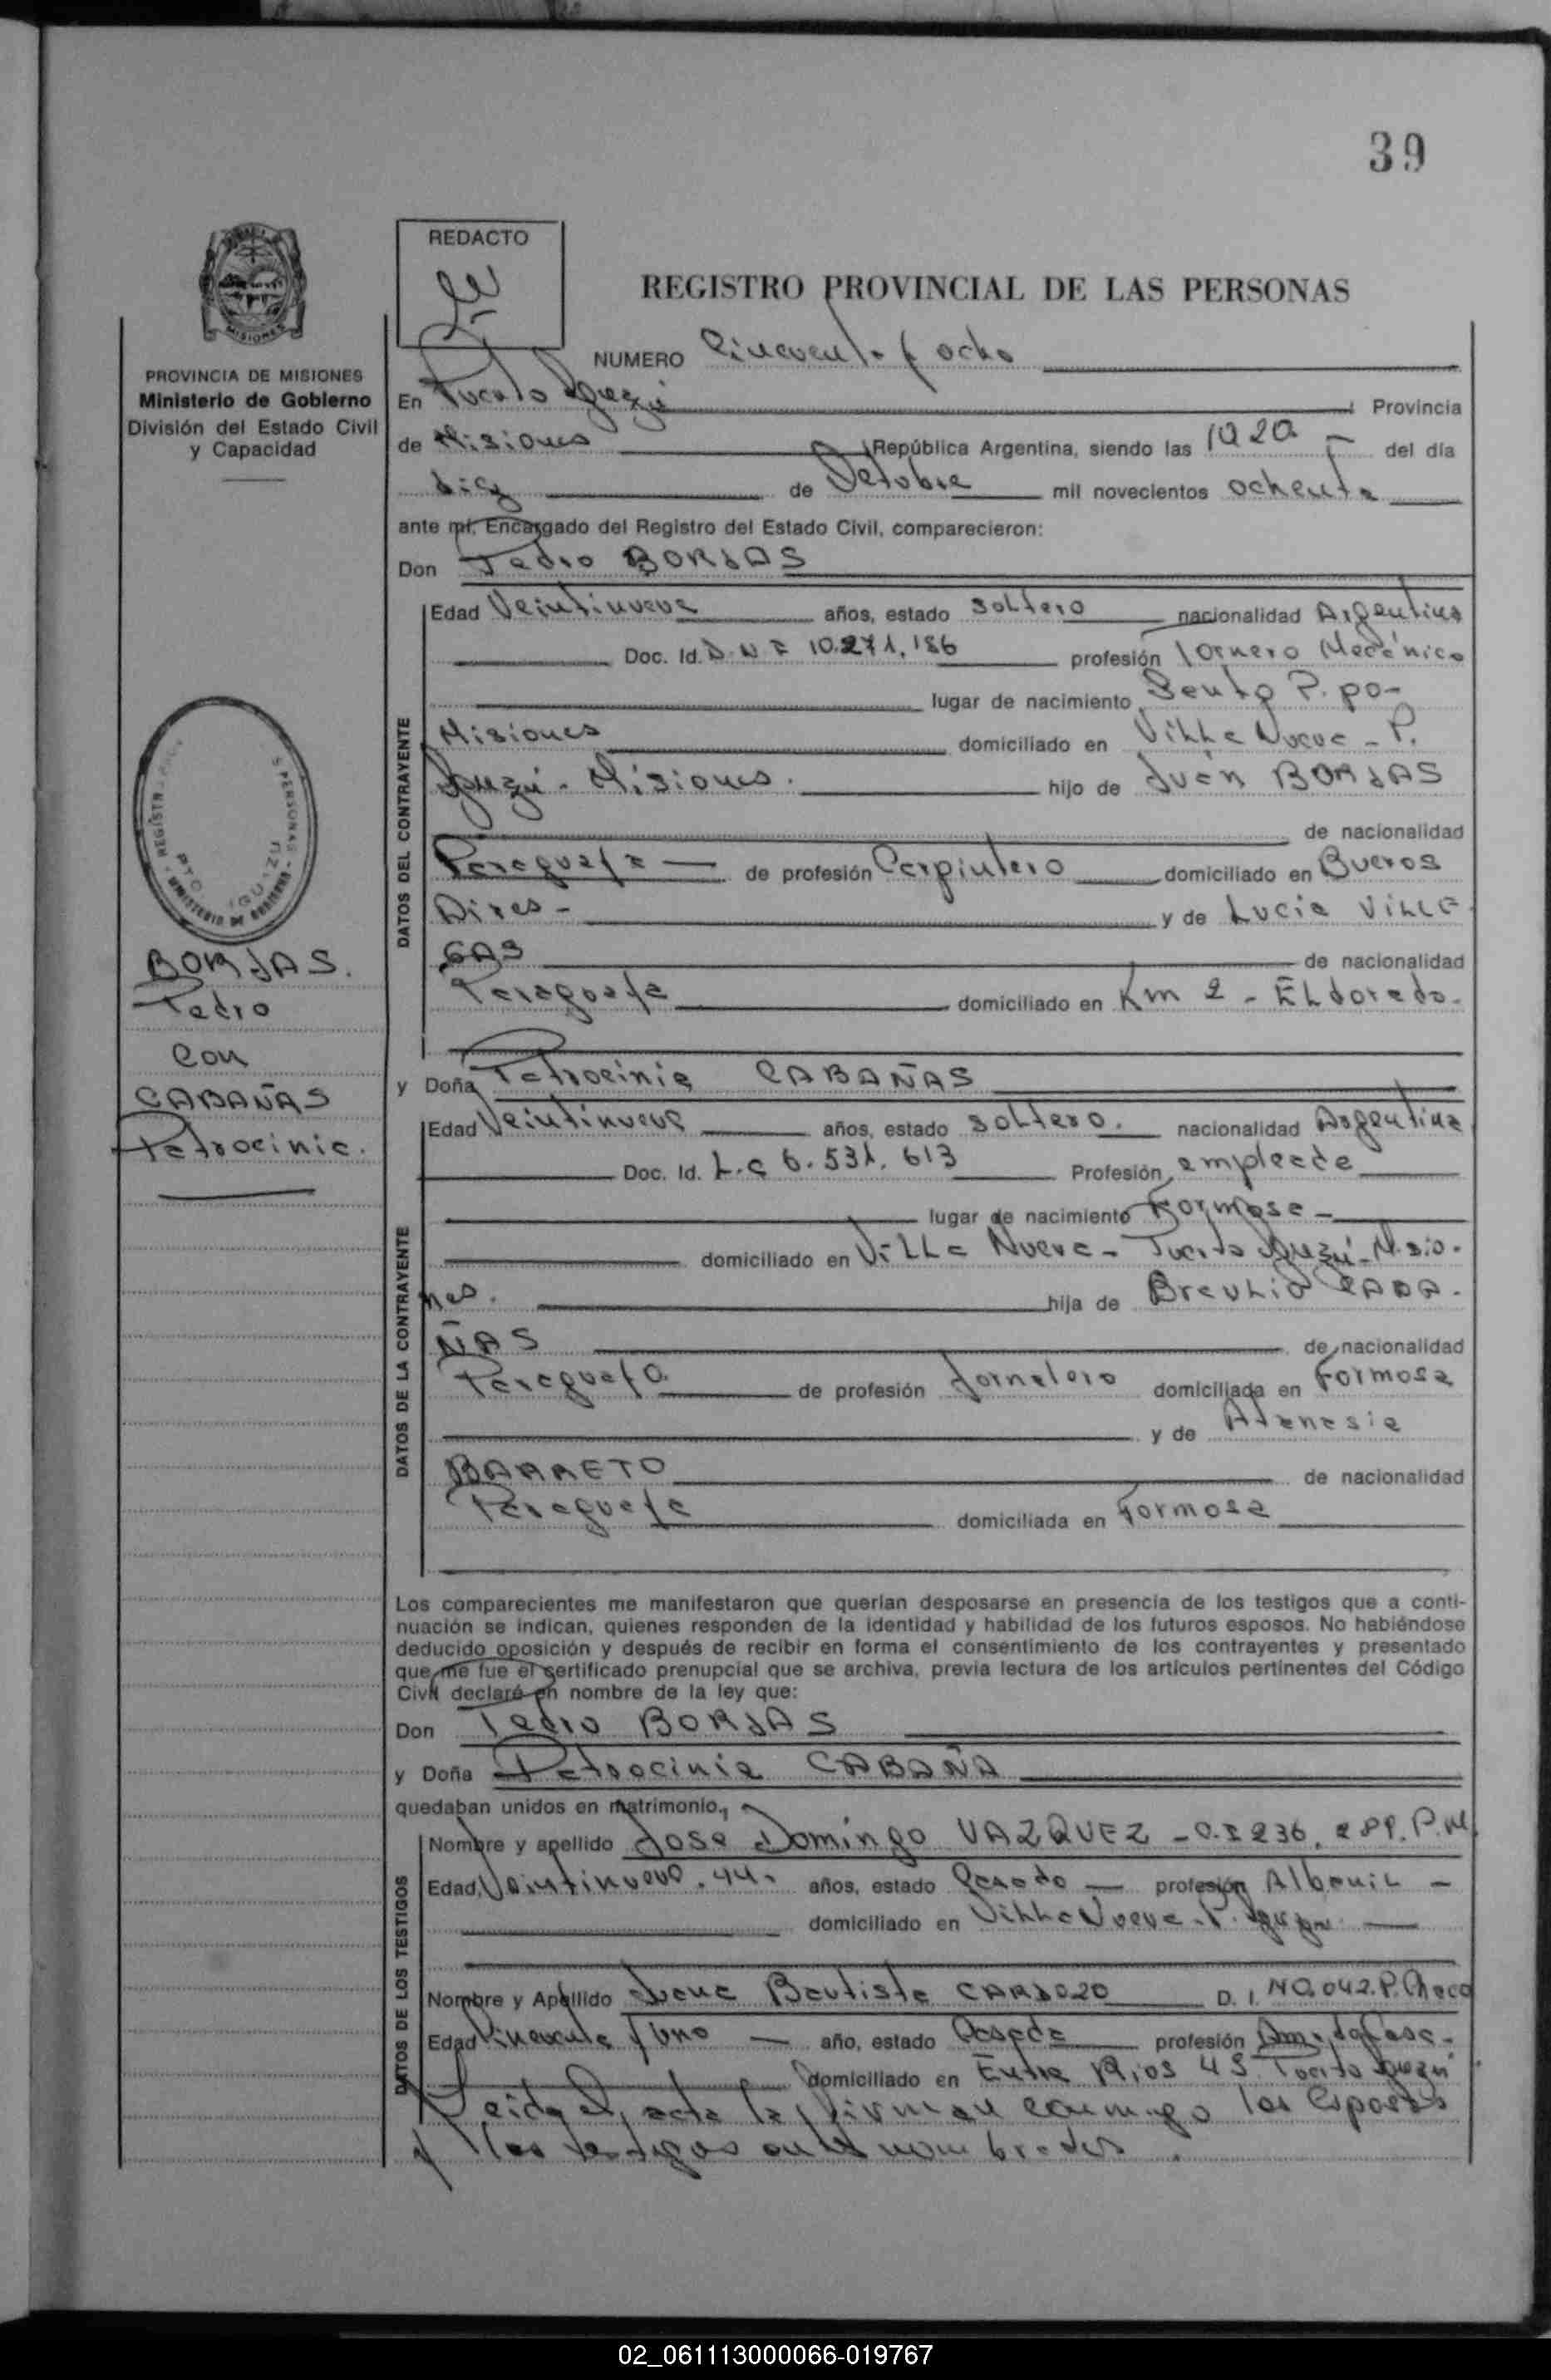 39
REDACTO
REGISTRO PROVINCIAL DE LAS PERSONAS
MISIONES
PROVINCIA DE MISIONES
Ministerio de Gobierno
División del Estado Civil
y Capacidad
BORJAS.
Pedro
con
CABAÑAS
Patrocinia.
NUMERO Cincuenta y ocho
En Puerto Iguazú Provincia
de Misiones República Argentina, siendo las 10 20 del día
diez de Octubre mil novecientos ochenta
ante mí, Encargado del Registro del Estado Civil, comparecieron:
Don Pedro BORJAS
DATOS DEL CONTRAYENTE
Edad Veintinueve años, estado soltero nacionalidad Argentina
Doc. Id. D.N.I 10.271.186 profesión Tornero Mecánico
lugar de nacimiento
Misiones domiciliado en Villa Nueva - P.
Iguazú - Misiones. hijo de Juan BORJAS
de nacionalidad
Paraguaya de profesión Carpintero domiciliado en Buenos
Aires - y de Lucia VILLE
GAS de nacionalidad
Paraguaya domiciliado en Km 2 - ELdorado.
y Doña Patrocinia CABAÑAS
DATOS DE LA CONTRAYENTE
Edad Veintinueve años, estado soltero. nacionalidad Argentina
Doc. Id. L.C 6.531.613 Profesión empleada
lugar de nacimiento Formosa -
domiciliado en Villa Nueva - Puerto Iguazú - Misio-
nes. hija de Braulio CABA-
ÑAS de nacionalidad
Paraguayo de profesión Jornalero domiciliada en Formosa
y de Atanasia
BARRETO de nacionalidad
Paraguaya domiciliada en Formosa
Los comparecientes me manifestaron que querían desposarse en presencia de los testigos que a conti-
nuación se indican, quienes responden de la identidad y habilidad de los futuros esposos. No habiéndose
deducido oposición y después de recibir en forma el consentimiento de los contrayentes y presentado
que me fue el certificado prenupcial que se archiva, previa lectura de los artículos pertinentes del Código
Civil declaré en nombre de la ley que:
Don Pedro BORJAS
y Doña Patrocinia CABAÑA
quedaban unidos en matrimonio,
DATOS DE LOS TESTIGOS
Nombre y apellido José Domingo VAZQUEZ - C.I 236.
Edad Veintinueve. 44. años, estado Casado profesión Albañil -
domiciliado en Villa Nueva - P. Iguazu.
Nombre y Apellido Juana Bautista CARDOZO D. I.
Edad Cincuenta y uno año, estado Casada profesión Ama de Casa -
domiciliado en Entre Rios 45 Puerto Iguazú
Leida el acta la firman conmigo los Esposos
y los testigos ante nombrados.
02_061113000066-019767